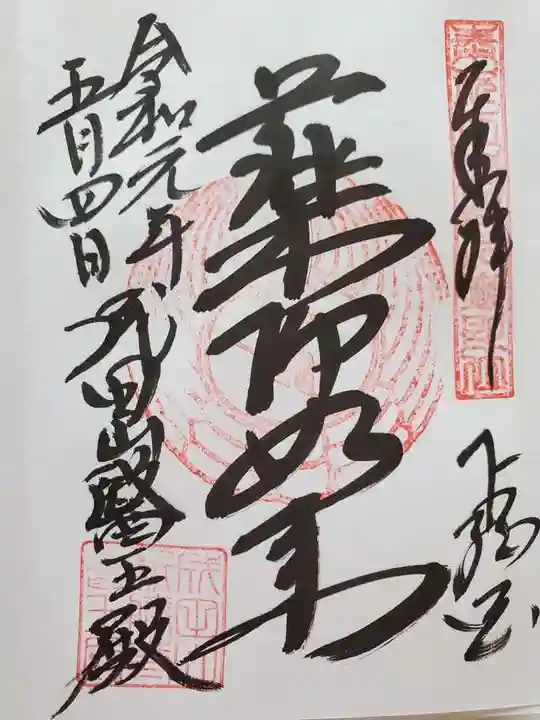 奉拝
下総国
薬師如来
令和元年
五月四日
成田山醫王殿